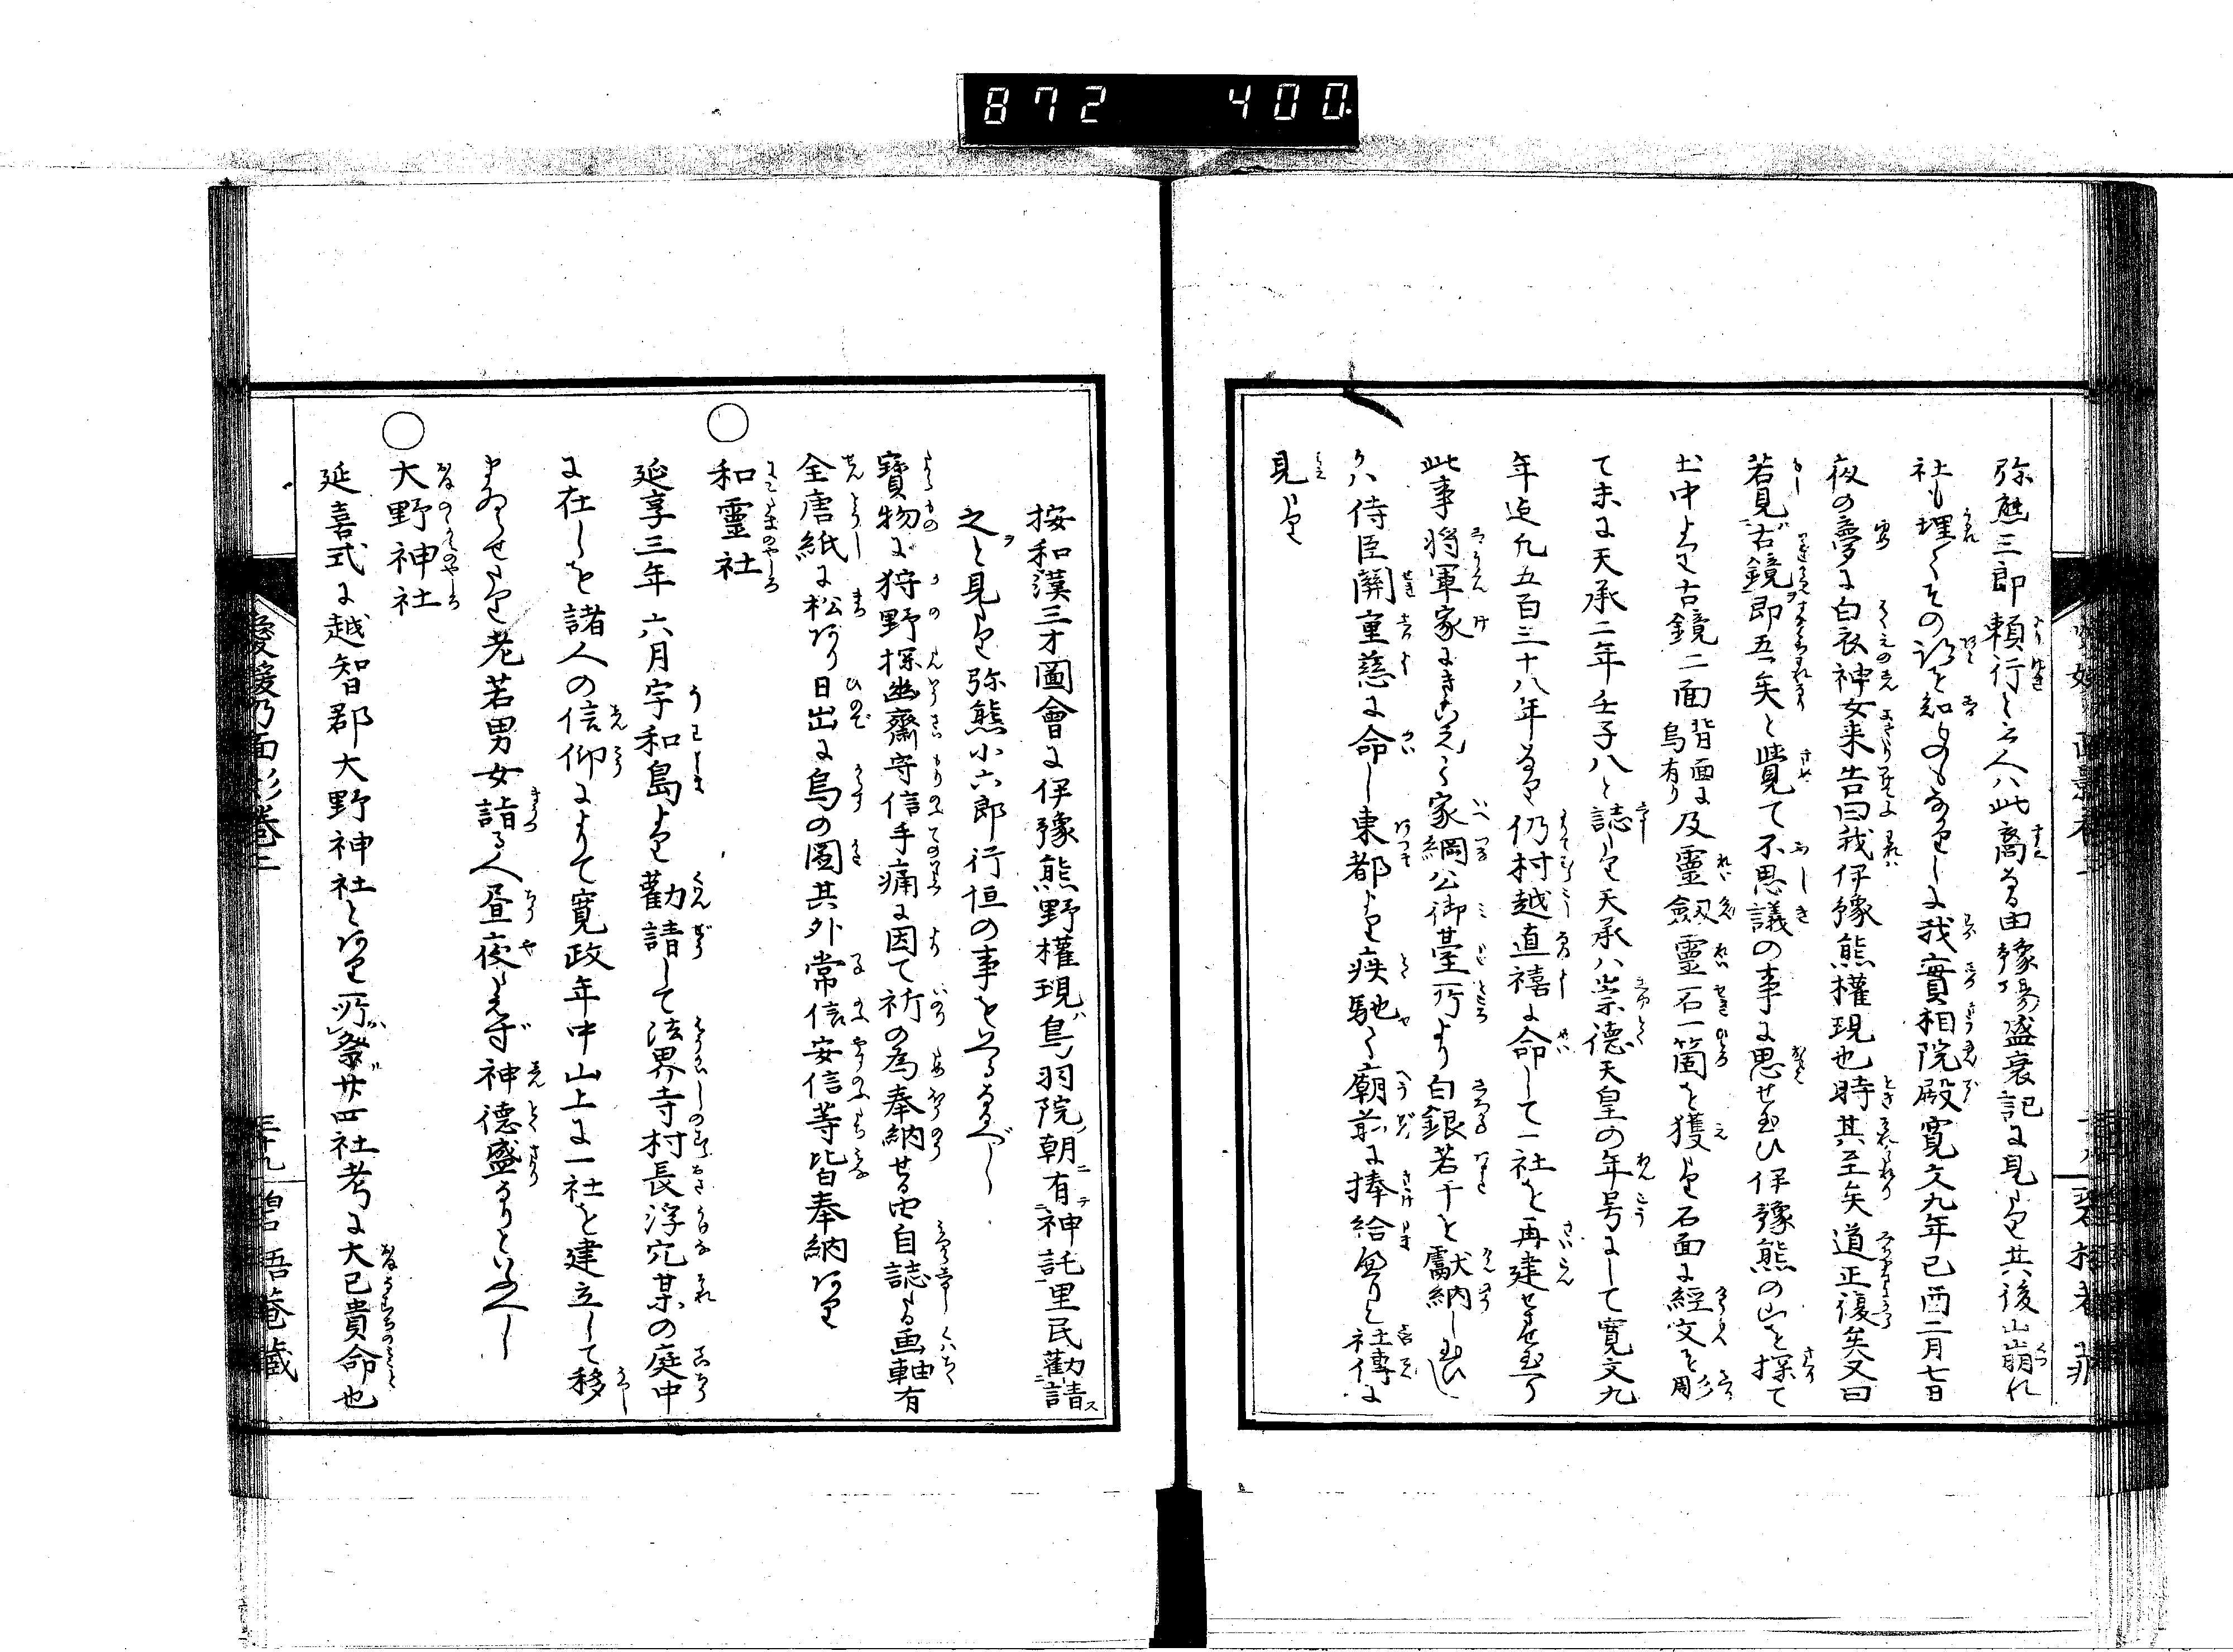 872 400.
弥熊三郎頼行と云人ハ此裔なる由豫陽盛衰記に見えたり其後山崩れ
社も埋れてその跡を知ものもなかりしに我實相院殿寛文九年己酉二月七日
夜の夢に白衣神女来告曰我伊豫熊權現也時其至矣道正復矣又曰
若見古鏡即吾矣と覺て不思議の事に思せ玉ひ伊豫熊の山を探て
土中より古鏡二面背面に烏有り及靈劔靈石一箇を獲たり石面に経文を周
て末に天承二年壬子八と誌したり天承ハ崇德天皇の年号にして寛文九
年迄凡五百三十八年なり仍村越直禧に命して一社を再建せさせ玉ふ
此事将軍家にきこえて家綱公御臺所より白銀若干を獻納し玉ひし
かハ侍臣關重慈に命し東都より疾馳て廟前に捧給へりと社傳に
見えたり
按和漢三才圖會に伊豫熊野權現ハ鳥羽院ノ朝ニ有テ神託里民勸請ス
之ヲと見えたり弥熊小六郎行恒の事を云なるべし
寶物に狩野探幽齋守信手痛に因て祈の為奉納せる由自誌たる画軸有
全唐紙に松あり日出に烏の圖其外常信安信等皆奉納あり
○和靈社
延享三年六月宇和島より勸請して法界寺村長浮穴某の庭中
に在しを諸人の信仰によりて寛政年中山上に一社を建立して移
まゐらせたり老若男女詣る人昼夜たえず神德盛なりといふべし
○大野神社
延喜式に越智郡大野神社とあり所祭廿四社考に大己貴命也
愛媛乃面影巻二
三十九 碧梧菴藏